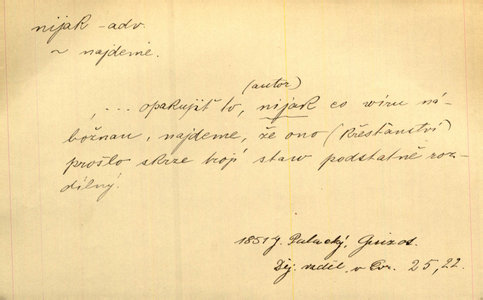 nijak - adv.
~ najdeme.
(autor)
, ... opakujíť to, nijak co wíru ná-
božnau, najdeme, že ono (křesťanství)
prošlo skrze trojí staw podstatně roz-
dílný.
1851 J. Palacký, Guizot.
Děj. vzděl. v Evr. 25, 22.